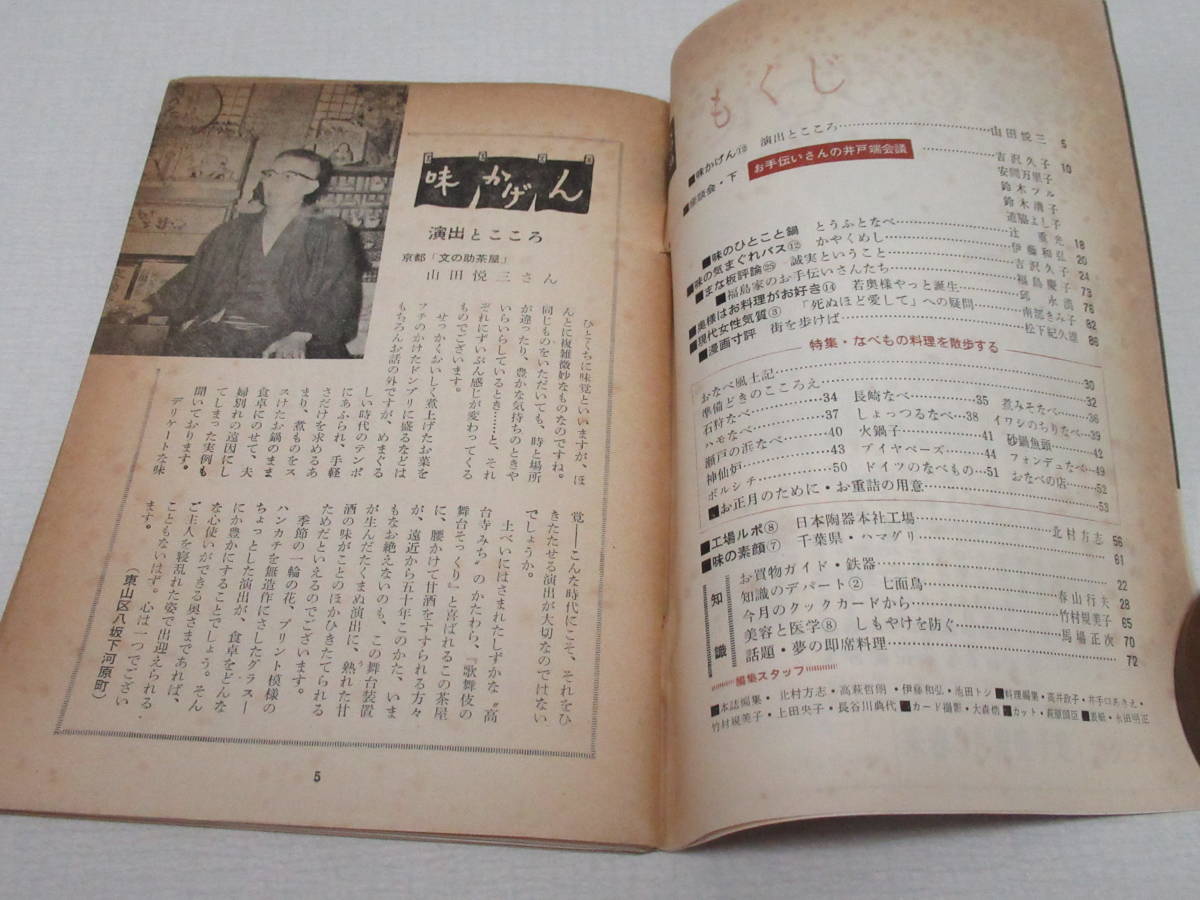 味かげん
演出とこころ
京都「文の助茶屋」
山田悦三さん
ひとくちに味覚といいますが、ほ
んとに複雑微妙なものなのですね。
同じものをいただいても、時と場所
が違ったり、豊かな気持ちのときや
いらいらしているときと……と、それ
ぞれにずいぶん感じが変わってくる
ものでございます。
せっかくおいしく煮上げたお菜を
フチのかけたドンブリに盛るなどは
もちろんお話の外ですが、めまぐる
しい時代のテンポ
にあふられ、手軽
さだけを求めるあ
まり、煮ものをス
スけたお鍋のまま
食卓にのせて、夫
婦別れの遠因にし
てしまった実例も
聞いております。
デリケートな味
覚――こんな時代にこそ、それをひ
きたたせる演出が大切なのではない
でしょうか。
土べいにはさまれたしずかな〝高
台寺みち〟のかたわら、『歌舞伎の
舞台そっくり』と喜ばれるこの茶屋
に、腰かけて甘酒をすすられる方々
が、遠近から五十年このかた、いま
もなお絶えないのも、この舞台装置
が生んだたくまぬ演出に、熟れた甘
酒の味がことのほかひきたてられる
ためだといえるのでございます。
季節の一輪の花、プリント模様の
ハンカチを無造作にさしたグラス―
ちょっとした演出が、食卓をどんな
にか豊かにすることでしょう。そん
な心使いができる奥さまであれば、
ご主人を寝乱れた姿で出迎えられる
こともないはず。心は一つでござい
ます。
（東山区八坂下河原町）
5
もくじ
■味かげん⑬ 演出とこころ 山田悦三 5
■座談会・下 お手伝いさんの井戸端会議 吉沢久子 10
安間万里子
鈴木ツル
鈴木清子
道脇よし子
■味のひとこと鍋 とうふとなべ 辻重光 18
■味の気まぐれバス⑫ かやくめし 伊藤和弘 20
■まな板評論㉕ 誠実ということ 吉沢久子 24
■福島家のお手伝いさんたち 福島慶子 73
■奥様はお料理がお好き⑭ 若奥様やっと誕生 邱永漢 78
■現代女性気質⑧ 「死ぬほど愛して」への疑問 南部きみ子 82
■漫画寸評 街を歩けば 松下紀久雄 86
特集・なべもの料理を散歩する
おなべ風土記 30
準備どきのこころえ 32
石狩なべ 34 長崎なべ 35 煮みそなべ 36
ハモなべ 37 しょっつるなべ 38 イワシのちりなべ 39
瀬戸の浜なべ 40 火鍋子 41 砂鍋魚頭 42
神仙炉 43 ブイヤベーズ 44 フォンデュなべ 49
ボルシチ 50 ドイツのなべもの 51 おなべの店 52
お正月のために・お重詰の用意 53
■工場ルポ⑧ 日本陶器本社工場 北村方志 56
■味の素顔⑦ 千葉県・ハマグリ 61
知識
お買物ガイド・鉄器 22
知識のデパート② 七面鳥 春山行夫 28
今月のクックカードから 竹村規美子 65
美容と医学⑧ しもやけを防ぐ 馬場正次 70
話題・夢の即席料理 72
編集スタッフ
■本誌編集・北村方志・高萩哲朗・伊藤和弘・池田トシ■料理編集・高井政子・井手口あきえ・
竹村規美子・上田央子・長谷川典代■カード撮影・大森浩■カット・萩原臣■表紙・永田明正